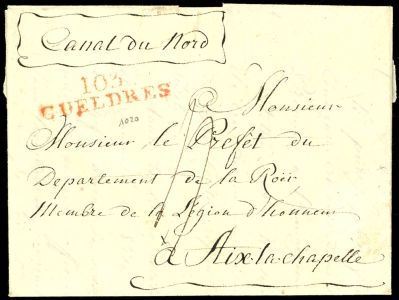 Canal du Nord
103
GUELDRES
1020
Monsieur
Monsieur le Préfet du
Departement de la Roër
Membre de la Légion d'honneur
à Aix-la-chapelle